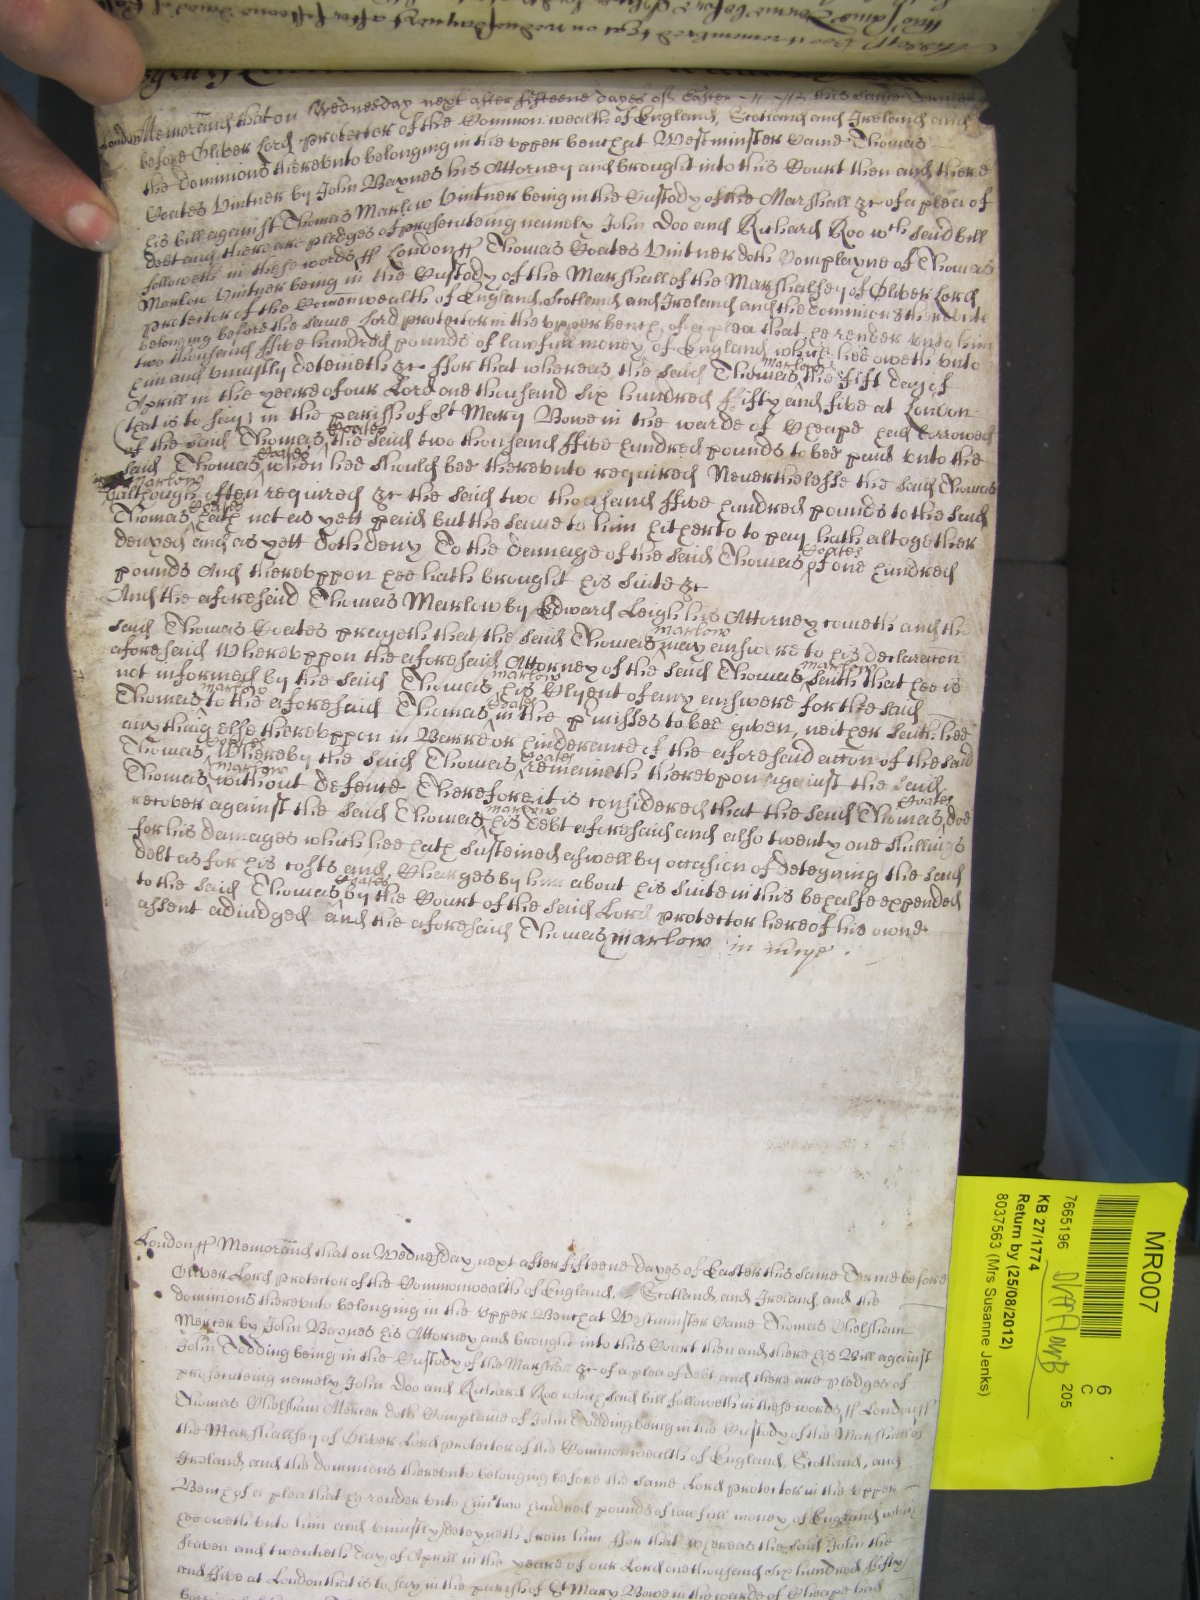 London Memorand that on Wednesday next after fifteene dayes of Easter this same Terme
before Oliver Lord protector of the Common:wealth of England, Scotland and Ireland and
the dominions therevnto belonging in the vpper bench at Westminster Came Thomas
Coates Vintner by John Baynes his Attorney and brought into this Court then and there
his bill against Thomas Marlow Vintner being in the Custody of the Marshall &c of a plea of
debt and there are pledges of prosecuteing namely John Doo and Richard Roo wch said bill
followeth in these words ss London ss Thomas Coates Vintner doth Complayne of Thomas
Marlow Vintner being in the Custody of the Marshall of the Marshalsey of Oliver Lord
protector of the Comonwealth of England, Scotland and Ireland and the dominions therevnto
belonging before the same Lord protector in the vpper bench of a plea that he render vnto him
two thousand ffive hundred pounds of lawfull money of England which hee oweth vnto
him and vniustly deteineth &c ffor that whereas the said Thomas Marlow the fift day of
Aprill in the yeare of our Lord one thousand six hundred fifty and five at London
(that is to say) in the parish of St Mary Bowe in the warde of Cheape had borrowed
of the said Thomas Coates the said two thousand ffive hundred pounds to bee paid vnto the
said Thomas Coates when hee should bee therevnto required Neverthelesse the said Thomas
Marlow although often required &c the said two thousand ffive hundred pounds to the said
Thomas Coates hath not as yett paid but the same to him hitherto to pay hath altogether
denyed and as yett doth deny To the damage of the said Thomas Coates of one hundred
pounds And therevppon hee hath brought his suite &c
And the aforesaid Thomas Marlow by Edward Leigh his Attorney cometh and the
said Thomas Coates prayeth that the said Thomas marlow may answere to his declaracon
aforesaid Wherevppon the aforesaid Attorney of the said Thomas marlow saith that hee is
not informed by the said Thomas marlow his Clyent of any answere for the said
Thomas marlow to the aforesaid Thomas Coates in the pmisses to bee given, neither saith hee
any thing else therevppon in Barre or hinderance of the aforesaid accon of the said
Thomas Coates Whereby the said Thomas Coates remaineth therevpon against the said
Thomas marlow without defence Therefore it is considered that the said Thomas Coates doe
recover against the said Thomas marlow his debt aforesaid and also twenty one shillings
for his damages which hee hath susteined aswell by occasion of deteyning the said
debt as for his costs and Charges by him about his suite in this behalfe expended
to the said Thomas Coates by the Court of the said Lord protector here of his owne
assent adiudged and the aforesaid Thomas marlow in
London ss Memorand that on Wednesday next after fifteene dayes of Easter this same Terme before
Oliver Lord protector of the Commonwealth of England, Scotland, and Ireland, and the
dominions therevnto belonging in the vpper Bench at Westminster Came Thomas Chelsham
Mercer by John Baynes his Attorney and brought into this Court then and there his Bill against
John Dodding being in the Custody of the Marshall &c of a plea of debt and there are pledges of
prosecuteing namely John Doo and Richard Roo which said bill followeth in these words ss London ss
Thomas Chelsham Mercer doth Complaine of John Dodding being in the Custody of the Marshall of
the Marshallsey of Oliver Lord protector of the Commonwealth of England, Scotland, and
Ireland, and the dominions therevnto belonging before the same Lord protector in the vpper
Bench of a plea that he render vnto him two hundred pounds of lawfull money of England which
hee oweth vnto him and vniustly deteyneth from him ffor that whereas the said John the
seaven and twentieth day of Aprill in the yeare of our Lord one thousand six hundred fifty
and ffive at London that is to say in the parish of St Mary Bowe in the warde of Cheape had
MR007
6
C
205
7665196
KB 27/1774
Return by (25/08/2012)
8037563 (Mrs Susanne Jenks)